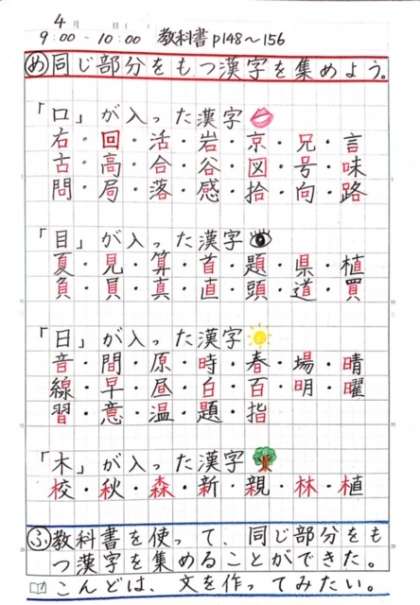 4月　日（　）
9:00～10:00　教科書p148～156
め 同じ部分をもつ漢字を集めよう。
「口」が入った漢字
右・回・活・岩・京・兄・言
古・高・合・谷・図・号・味
問・局・落・感・拾・向・路
「目」が入った漢字
夏・見・算・首・題・県・植
負・貝・真・直・頭・道・買
「日」が入った漢字
音・間・原・時・春・場・晴
線・早・昼・白・百・明・曜
習・意・温・題・指
「木」が入った漢字
校・秋・森・新・親・林・植
ふ 教科書を使って、同じ部分をも
つ漢字を集めることができた。
こんどは、文を作ってみたい。